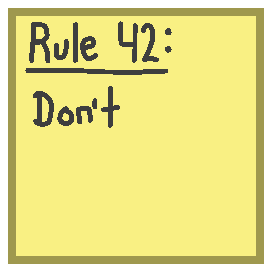 Rule 42:
Don't